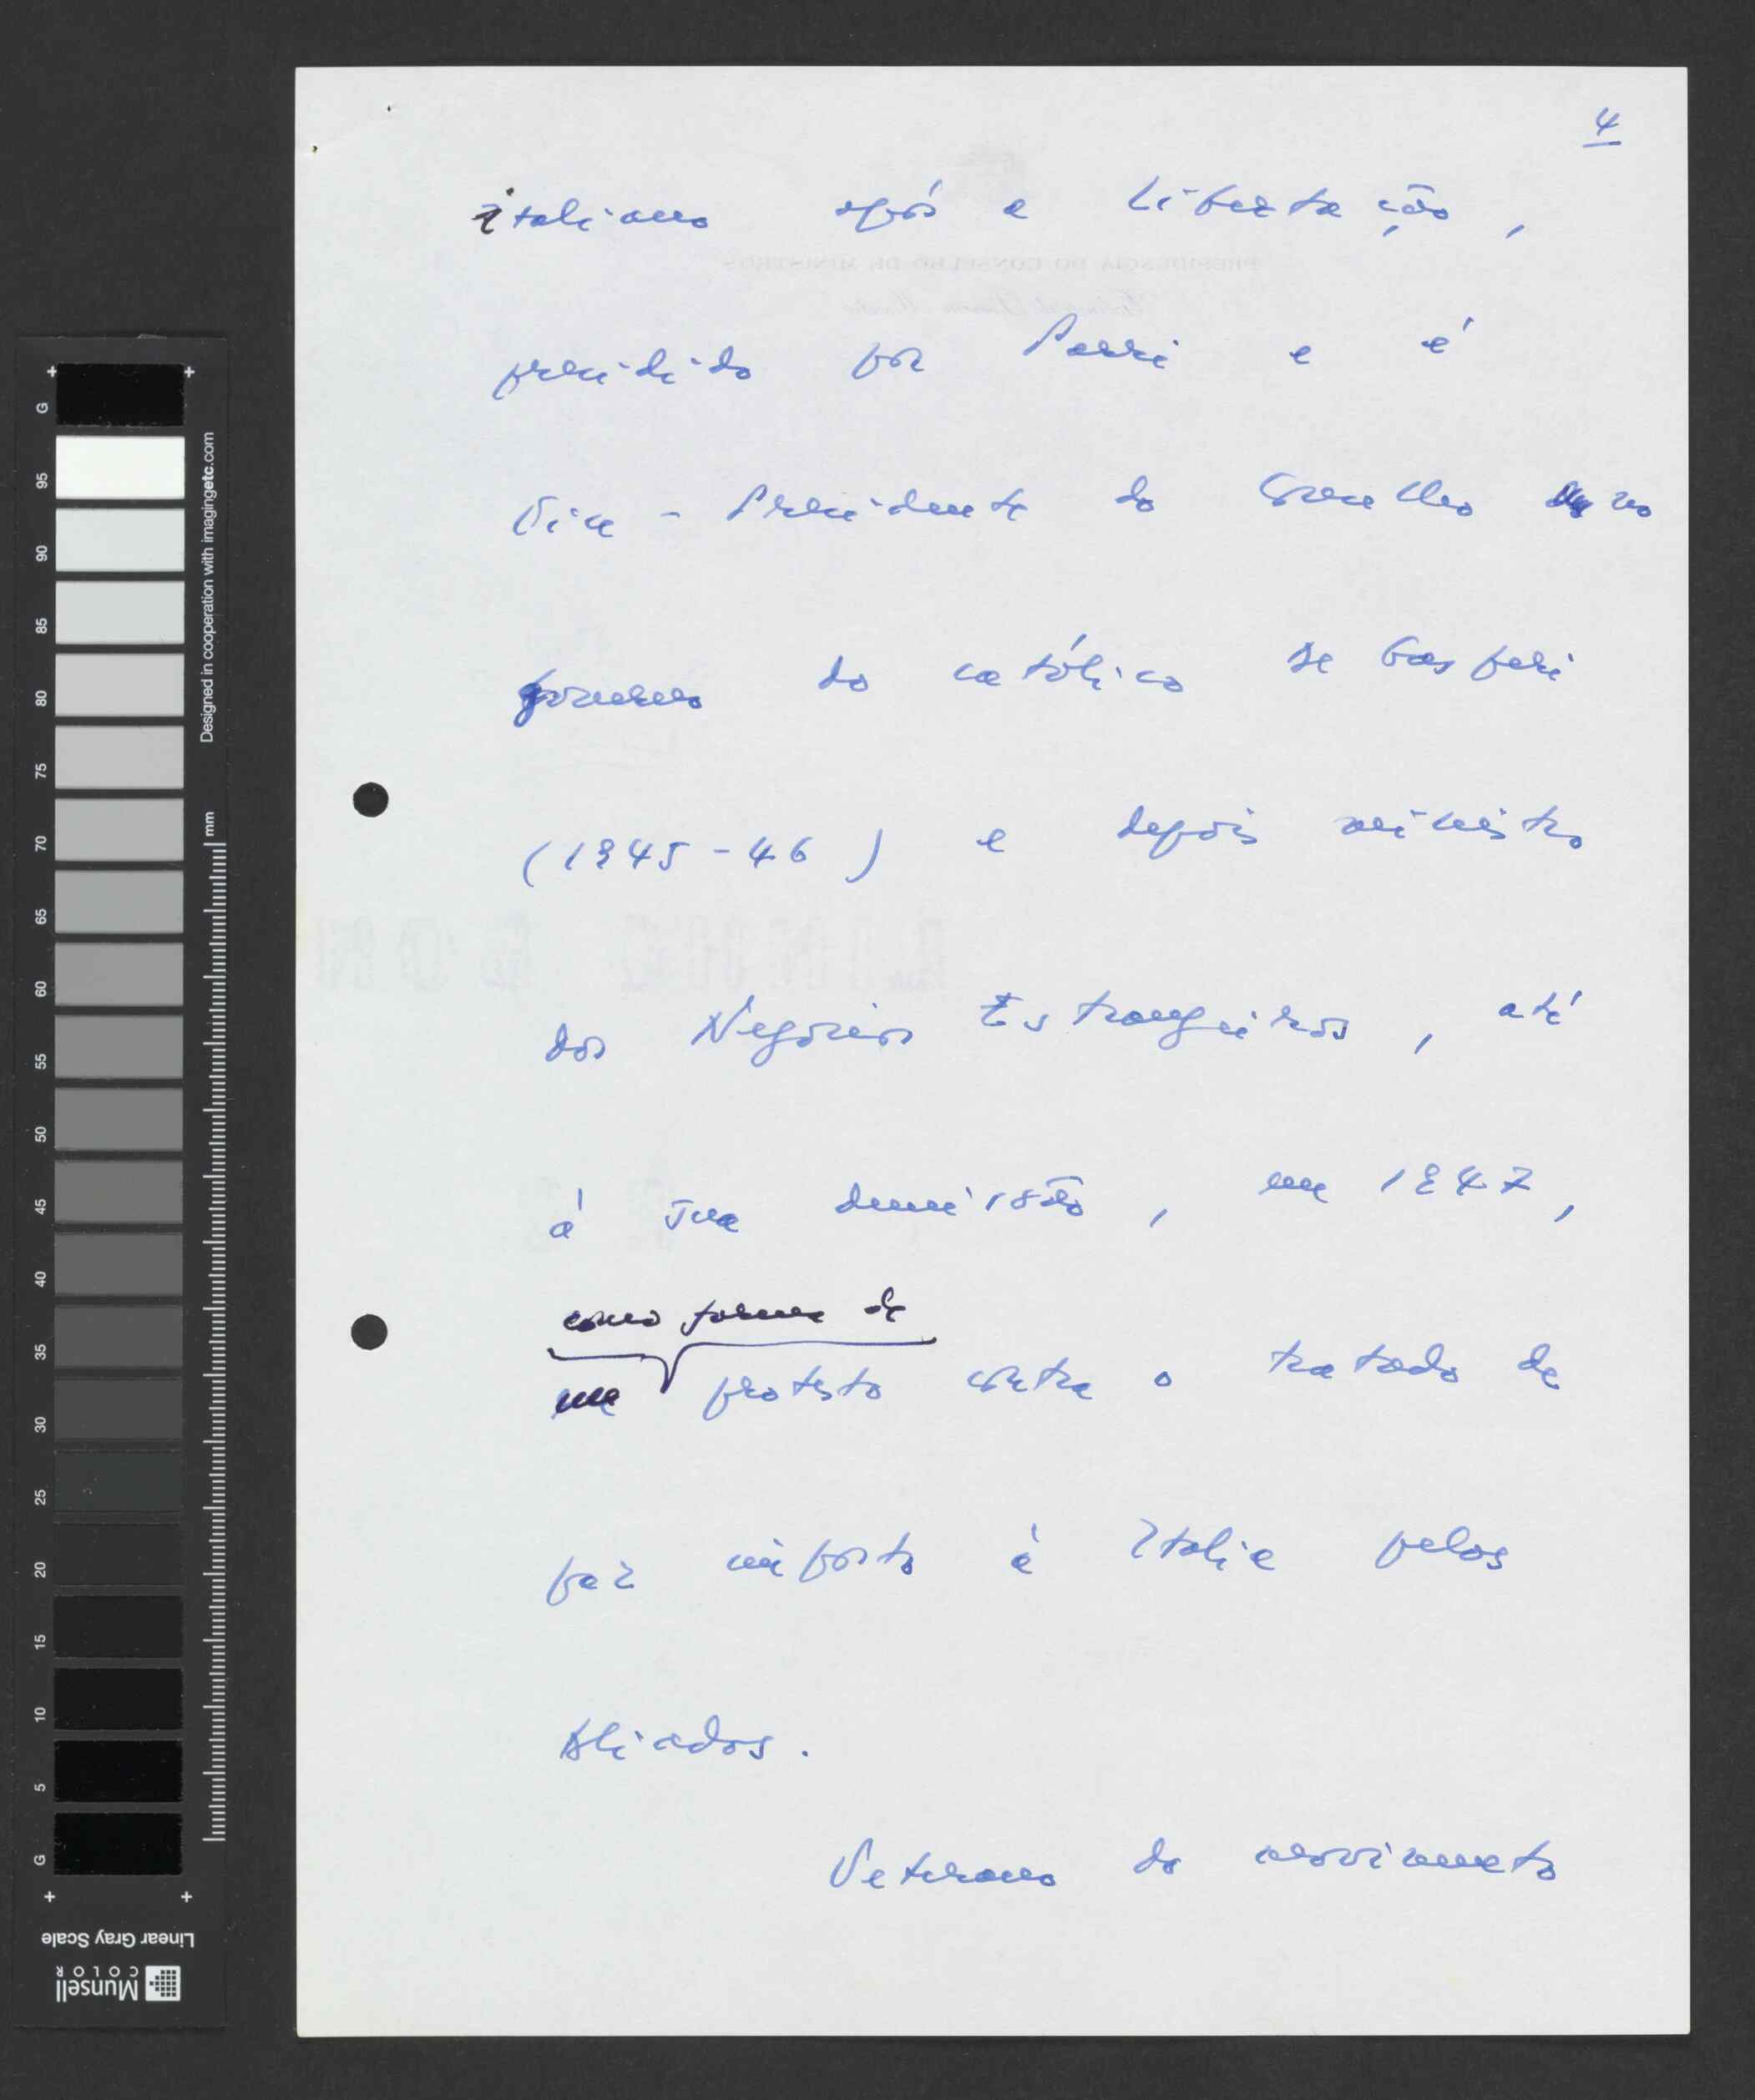 4
italiano após a Libertação,
presidido por Parri e é
Vice-Presidente do Conselho no
governo do católico de Gasperi
(1945-46) e depois ministro
dos Negócios Estrangeiros, até
à sua demissão, em 1947,
como forma de
em protesto contra o tratado de
paz imposto à Itália pelos
Aliados.
Veterano do movimento
G
95
90
85
80
75
70
65
60
55
50
45
40
35
30
25
20
15
10
5
G
Designed in cooperation with imagingetc.com
mm
Linear Gray Scale
Munsell
COLOR